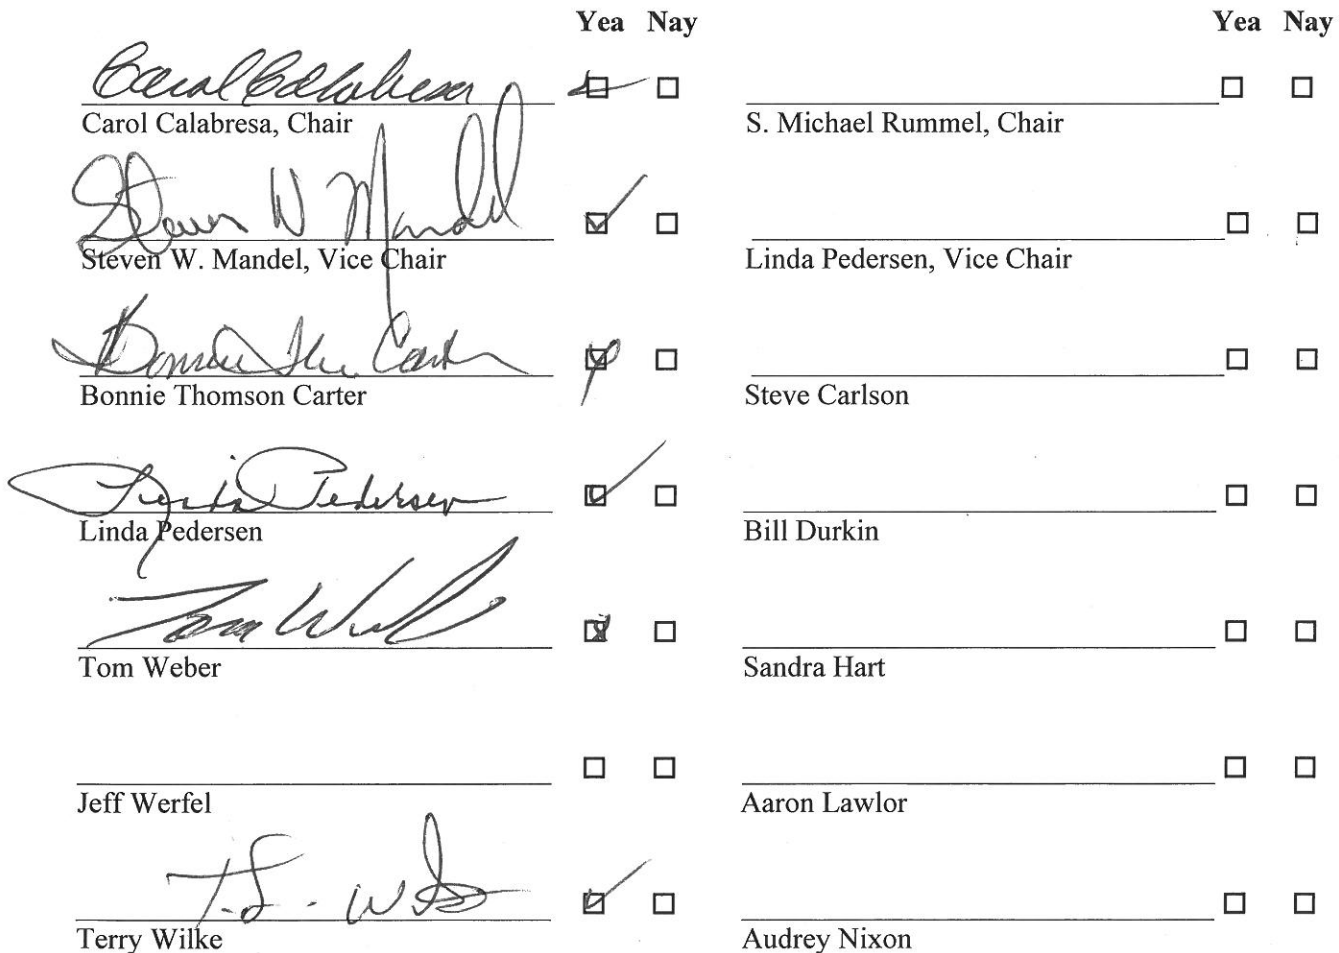 Yea Nay
Carol Calabresa
Carol Calabresa, Chair
Steven W Mandel
Steven W. Mandel, Vice Chair
Bonnie Tho Carter
Bonnie Thomson Carter
Linda Pedersen
Linda Pedersen
Tom Weber
Tom Weber
Jeff Werfel
T.L. Wilke
Terry Wilke
Yea Nay
S. Michael Rummel, Chair
Linda Pedersen, Vice Chair
Steve Carlson
Bill Durkin
Sandra Hart
Aaron Lawlor
Audrey Nixon